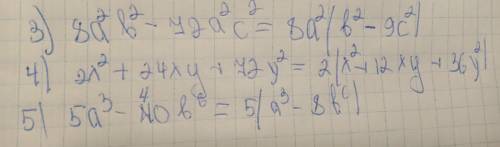 3) 8a²b² - 72a²c² = 8a²(b² - 9c²)
4) 2x² + 24xy + 72y² = 2(x² + 12xy + 36y²)
5) 5a³ - 40b⁶ = 5(a³ - 8b⁶)